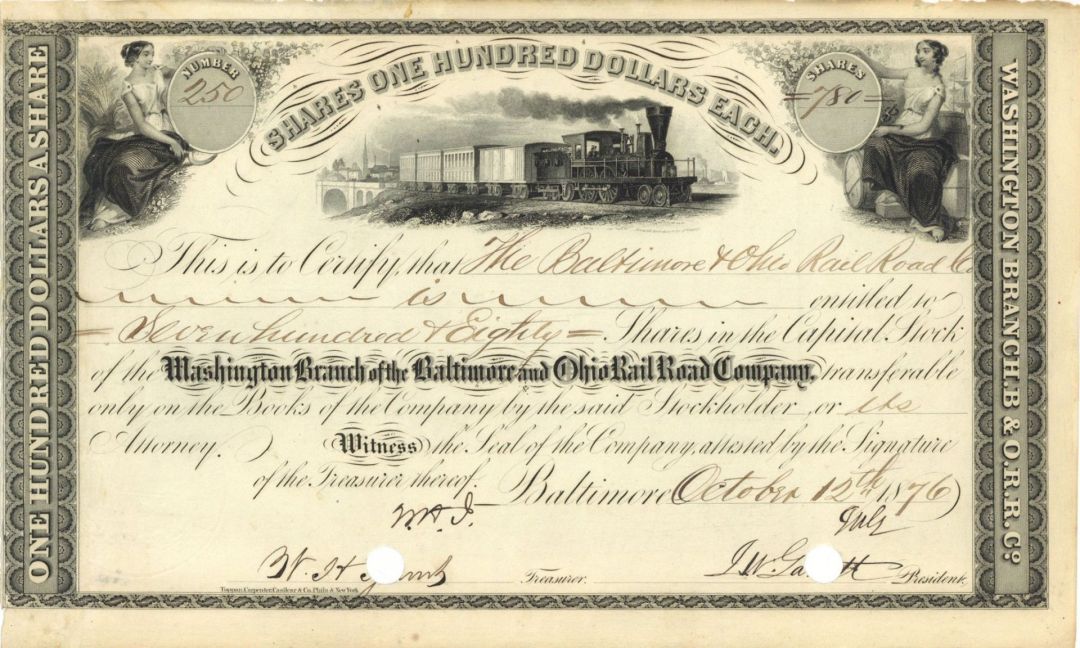 SHARES ONE HUNDRED DOLLARS EACH.
NUMBER
250
SHARES
=780=
ONE HUNDRED DOLLARS A SHARE
WASHINGTON BRANCH, B & O. R. R. Co.
This is to Certify, that The Baltimore & Ohio Rail Road Co
is entitled to
= Seven hundred & Eighty = Shares in the Capital Stock
of the Washington Branch of the Baltimore and Ohio Rail Road Company, transferable
only on the Books of the Company by the said Stockholder, or its
Attorney. Witness the Seal of the Company, attested by the Signature
of the Treasurer thereof. Baltimore October 12th 1876
W. H. I.
W. H. Treasurer.
J. W. Garrett President.
Toppan, Carpenter, Casilear & Co. Phila. & New York